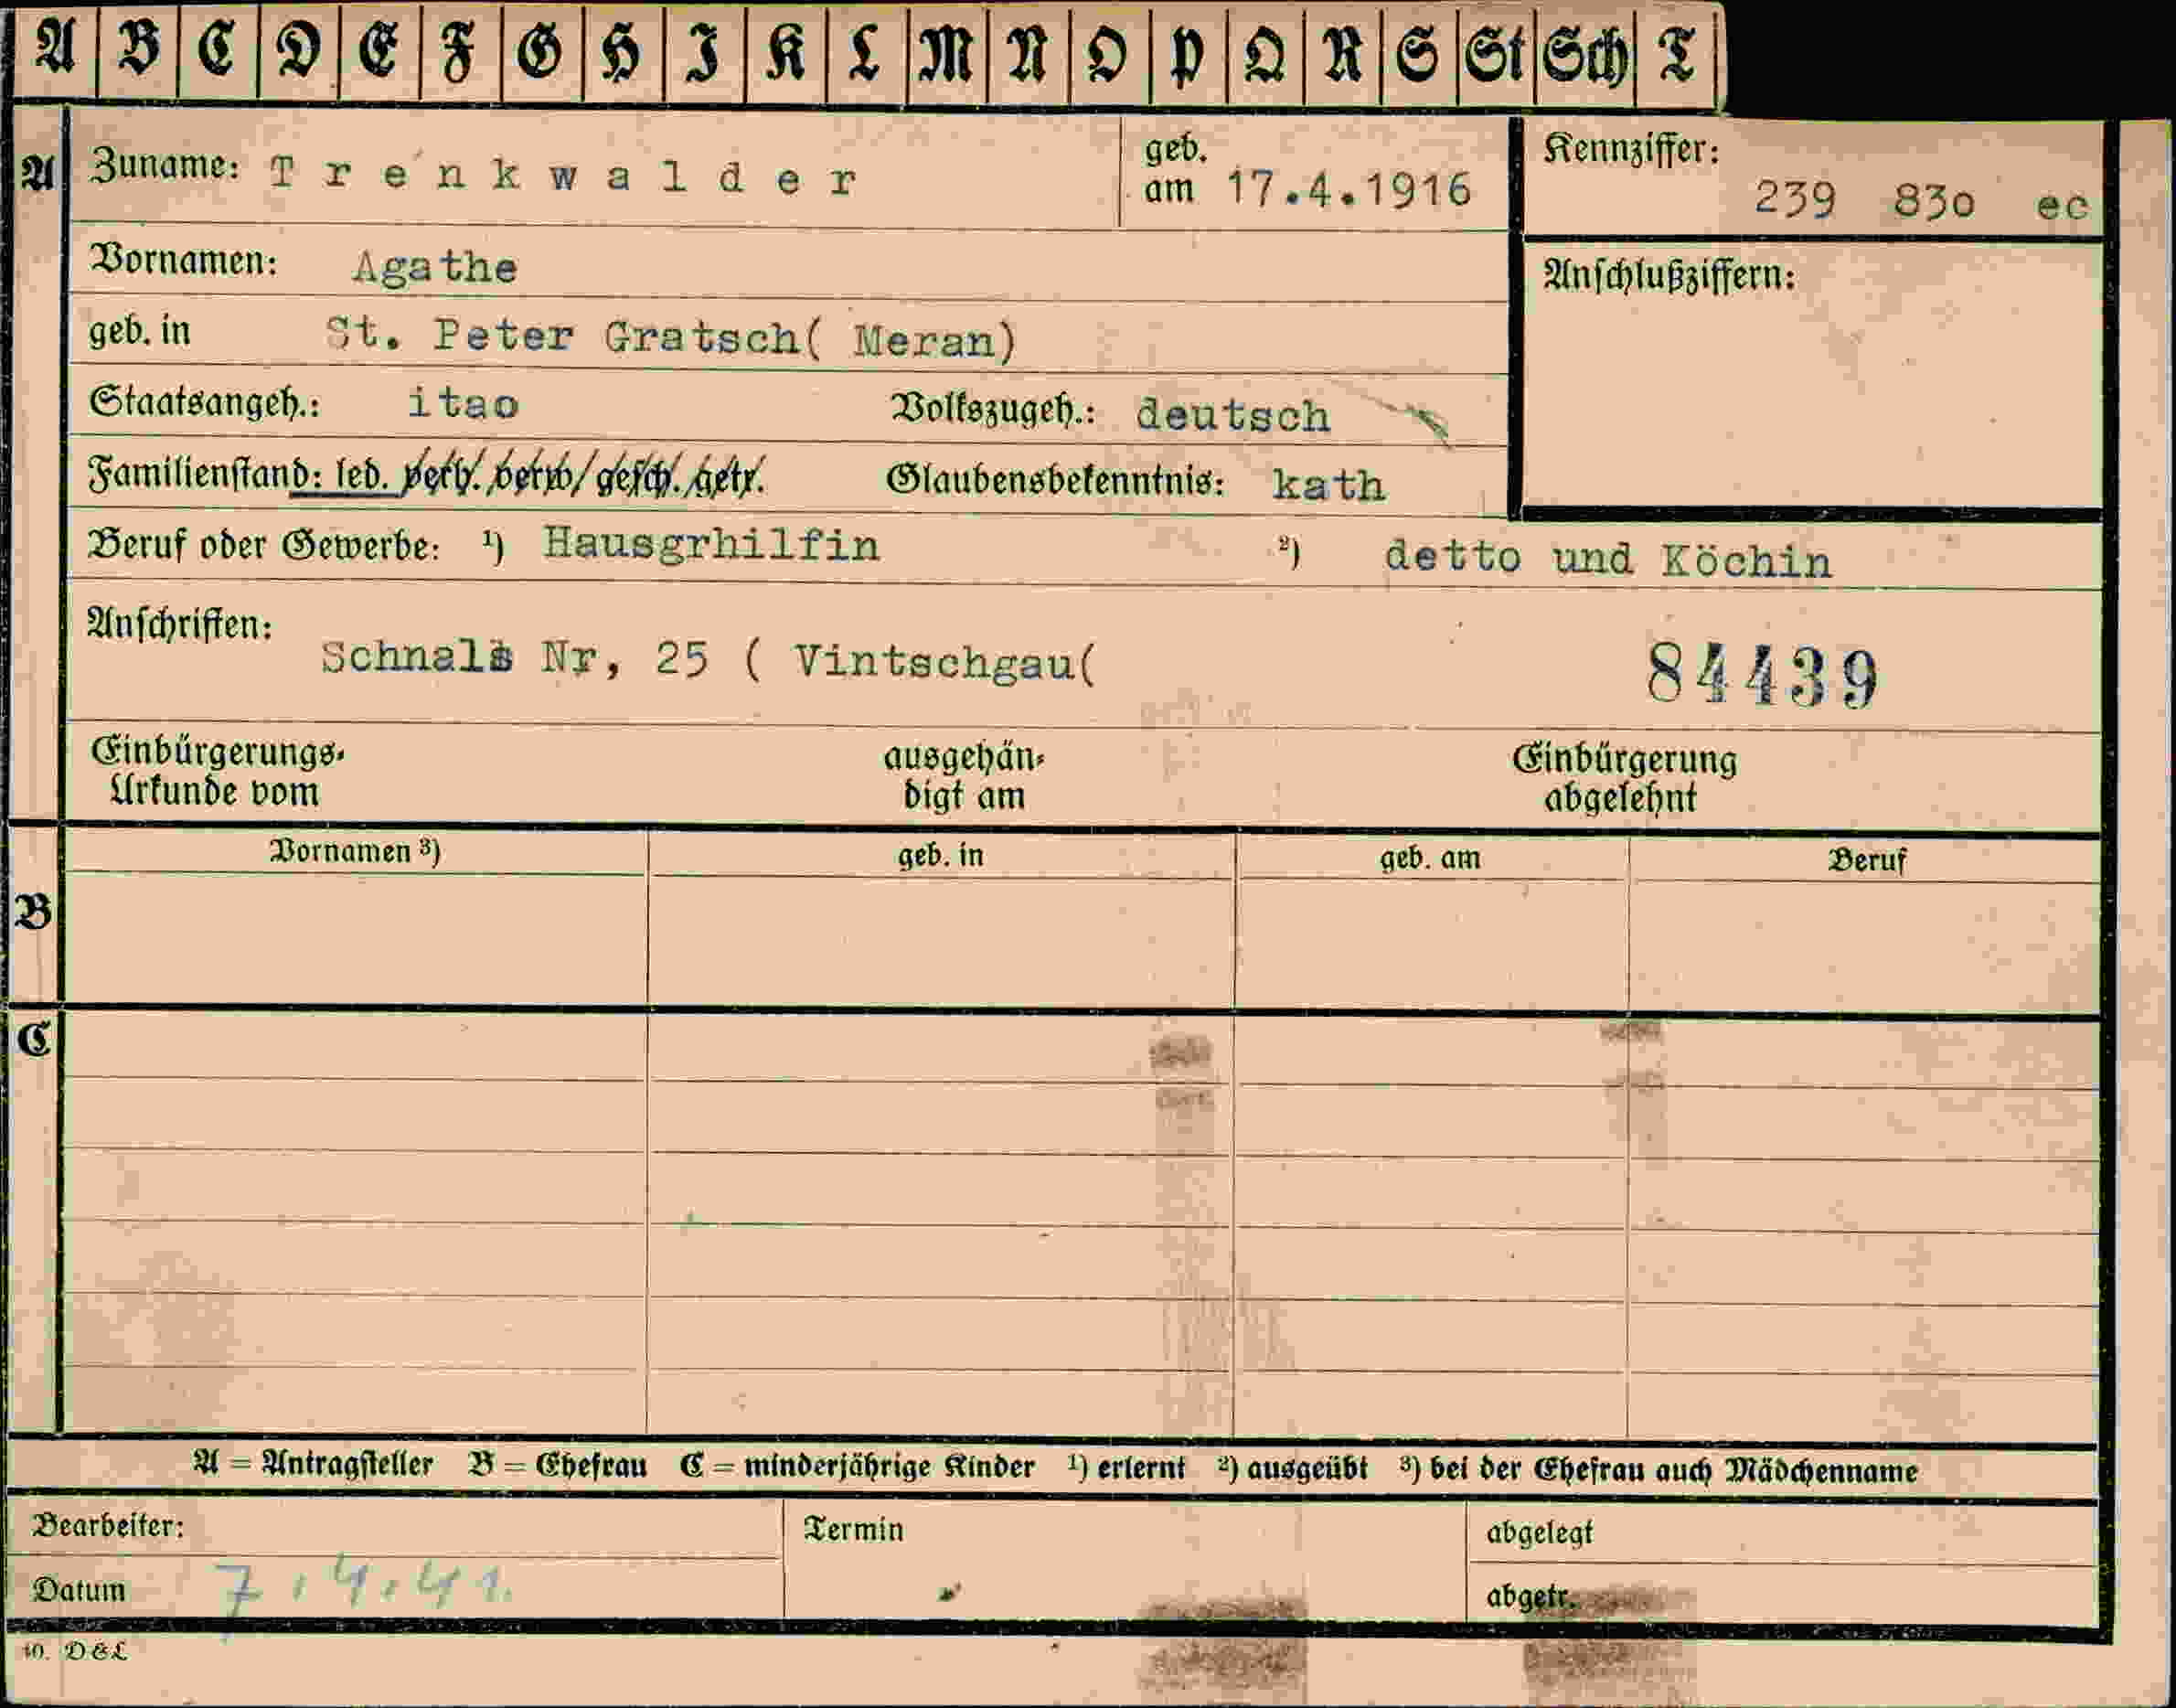 A B C D E F G H I K L M N O P Q R S St Sch T
A Zuname: Trenkwalder geb. am 17.4.1916 Kennziffer: 239 830 ec
Vornamen: Agathe Anschlußziffern:
geb. in St. Peter Gratsch( Meran)
Staatsangeh.: itao Volkszugeh.: deutsch
Familienstand: led. verh. verw. gesch. getr. Glaubensbekenntnis: kath
Beruf oder Gewerbe: ¹) Hausgrhilfin ²) detto und Köchin
Anschriften: Schnals Nr, 25 ( Vintschgau( 84439
Einbürgerungs- ausgehän- Einbürgerung
Urkunde vom digt am abgelehnt
Vornamen ³) geb. in geb. am Beruf
B
C
A = Antragsteller B = Ehefrau C = minderjährige Kinder ¹) erlernt ²) ausgeübt ³) bei der Ehefrau auch Mädchenname
Bearbeiter: Termin abgelegt
Datum 7.4.41. abgetr.
D&L